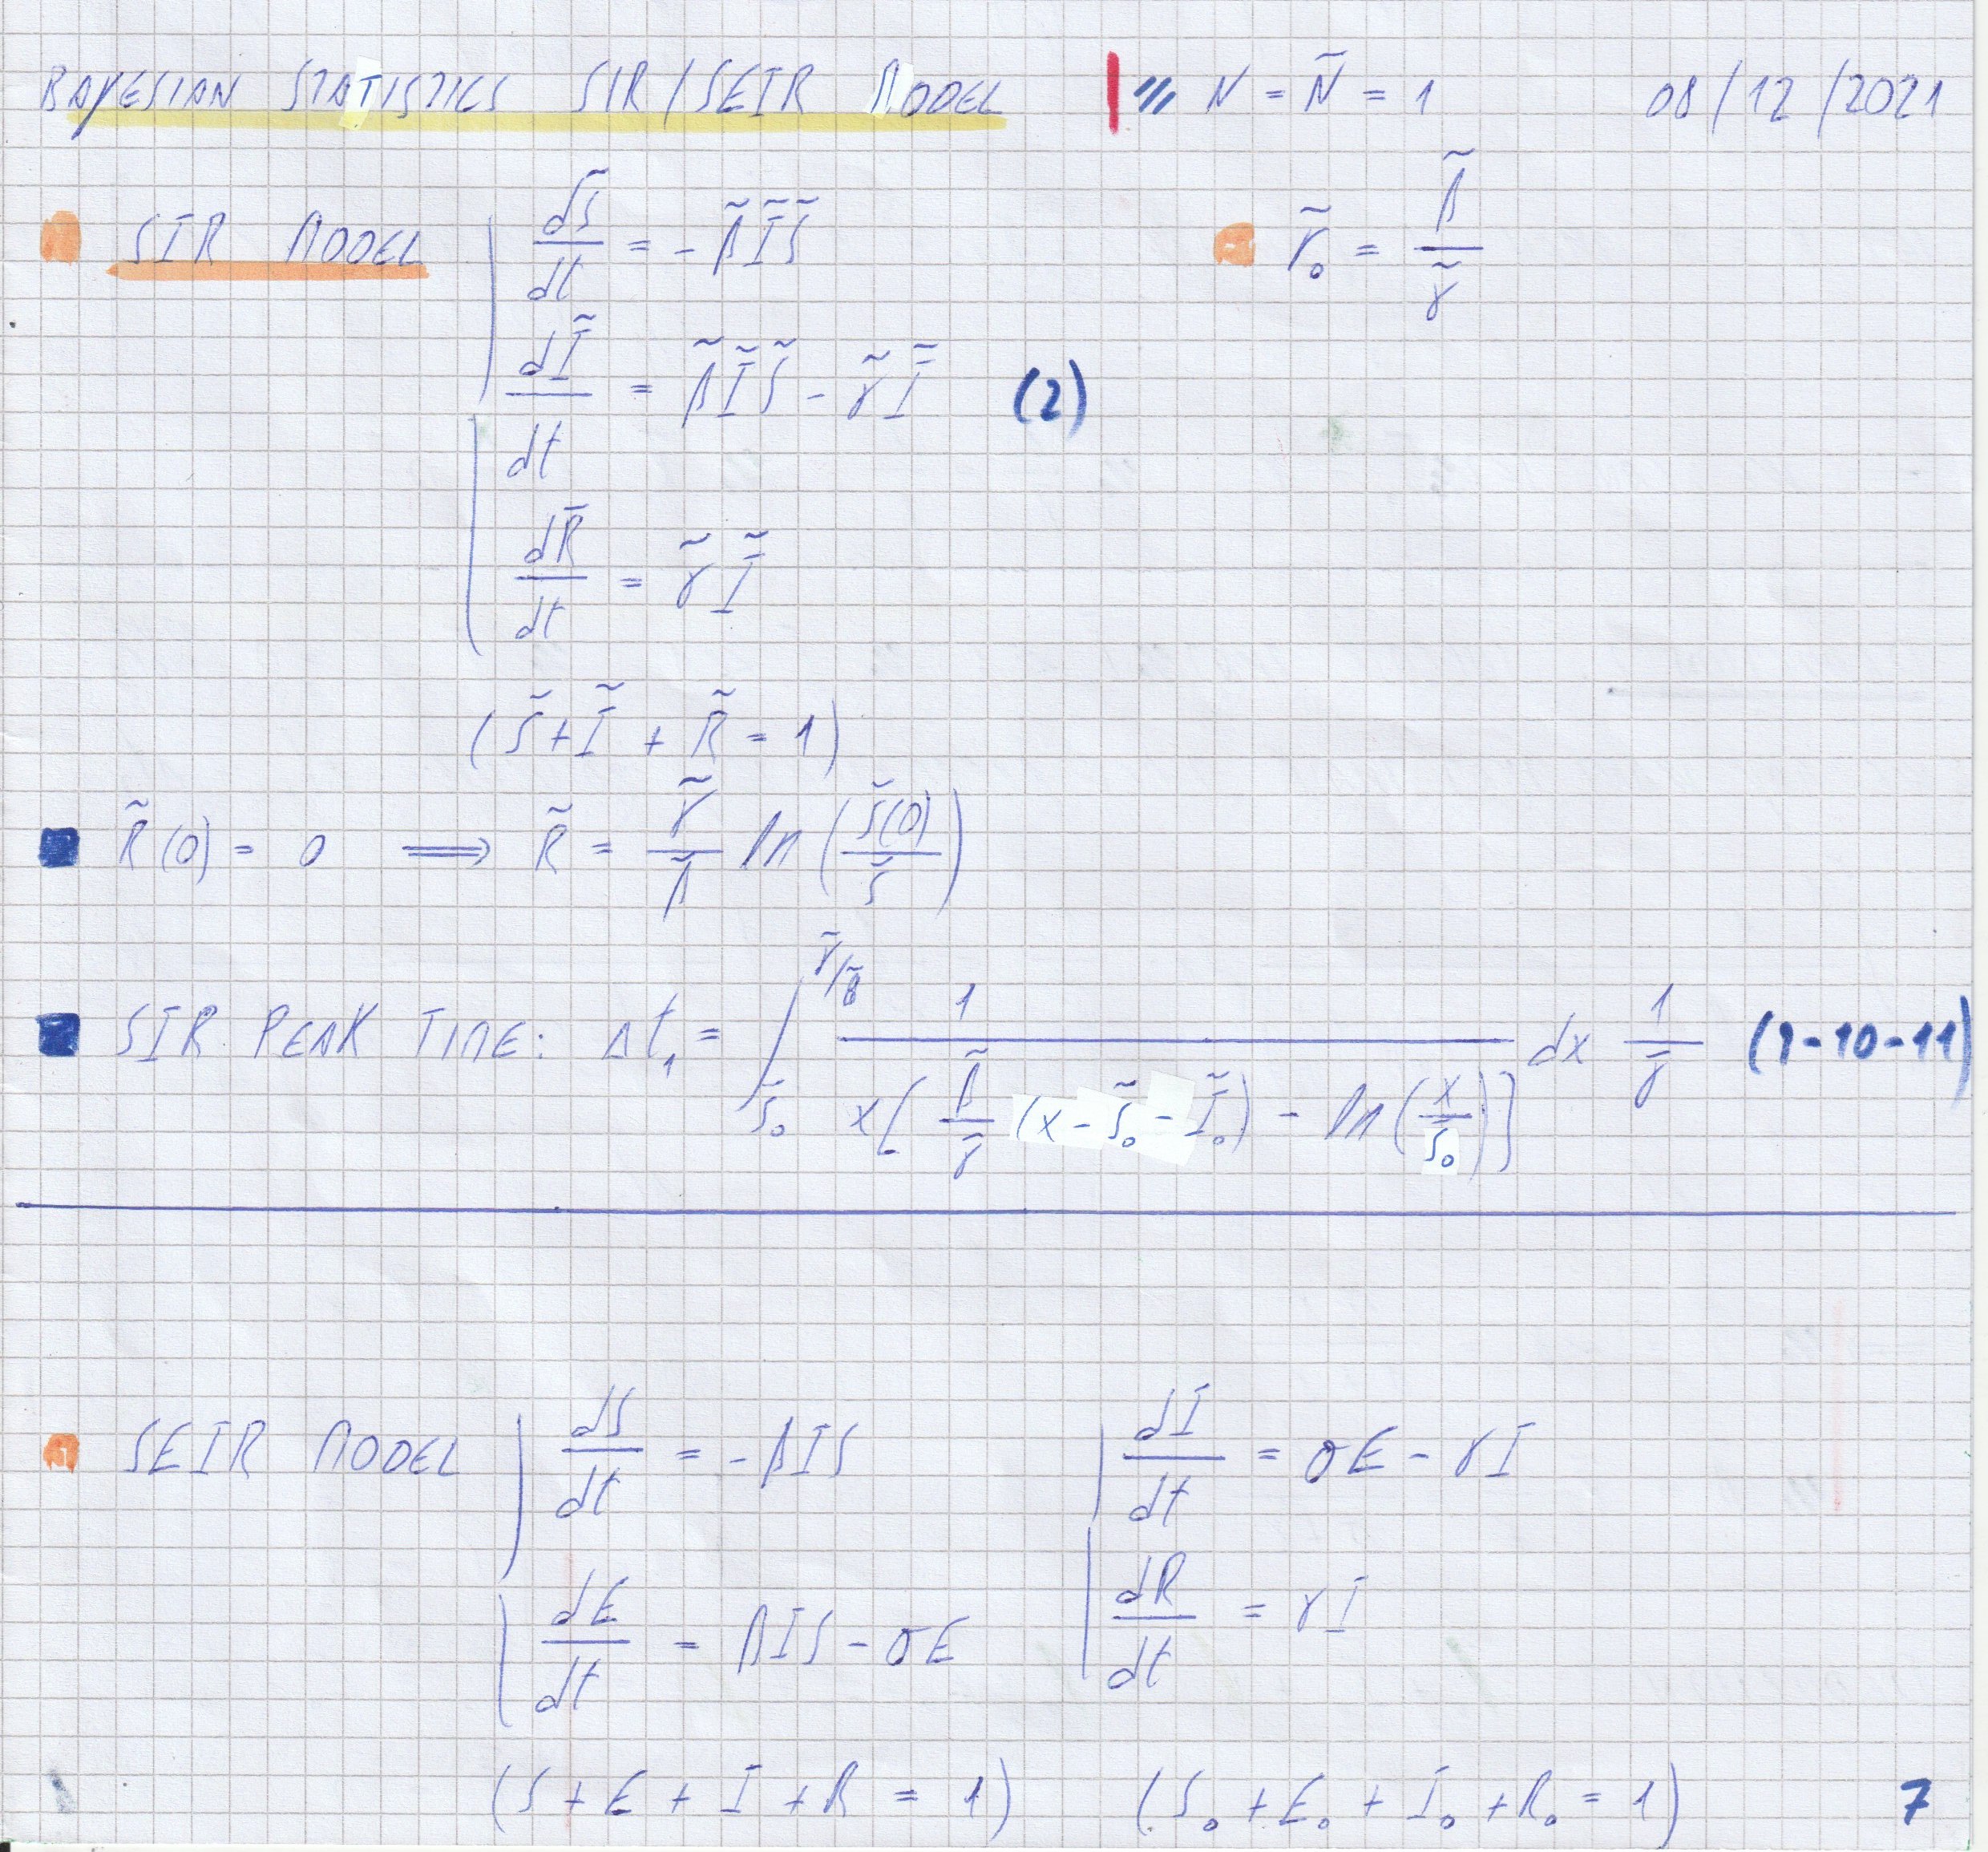 BAYESIAN STATISTICS SIR/SEIR MODEL N = Ñ = 1 08/12/2021
SIR MODEL dS̃/dt = -β̃ĨS̃ r̃₀ = β̃/γ̃
dĨ/dt = β̃ĨS̃ - γ̃Ĩ (2)
dR̃/dt = γ̃Ĩ
(S̃ + Ĩ + R̃ = 1)
R̃(0) = 0 ⟹ R̃ = γ̃/β̃ ln(S̃(0)/S̃)
SIR PEAK TIME: Δt₁ = ∫_{S̃₀}^{γ̃/β̃} 1/(x[β̃/γ̃ (x - S̃₀ - Ĩ₀) - ln(x/S̃₀)]) dx 1/γ̃ (9-10-11)
SEIR MODEL dS/dt = -βIS dI/dt = σE - γI
dE/dt = βIS - σE dR/dt = γI
(S + E + I + R = 1) (S₀ + E₀ + I₀ + R₀ = 1) 7